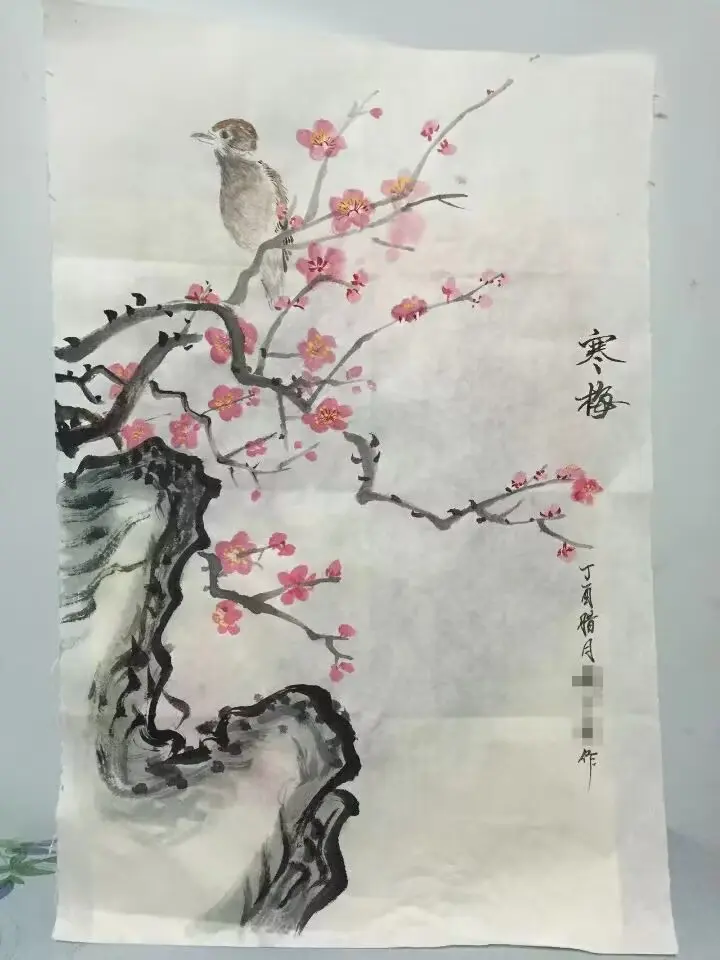 寒梅
丁酉腊月
作